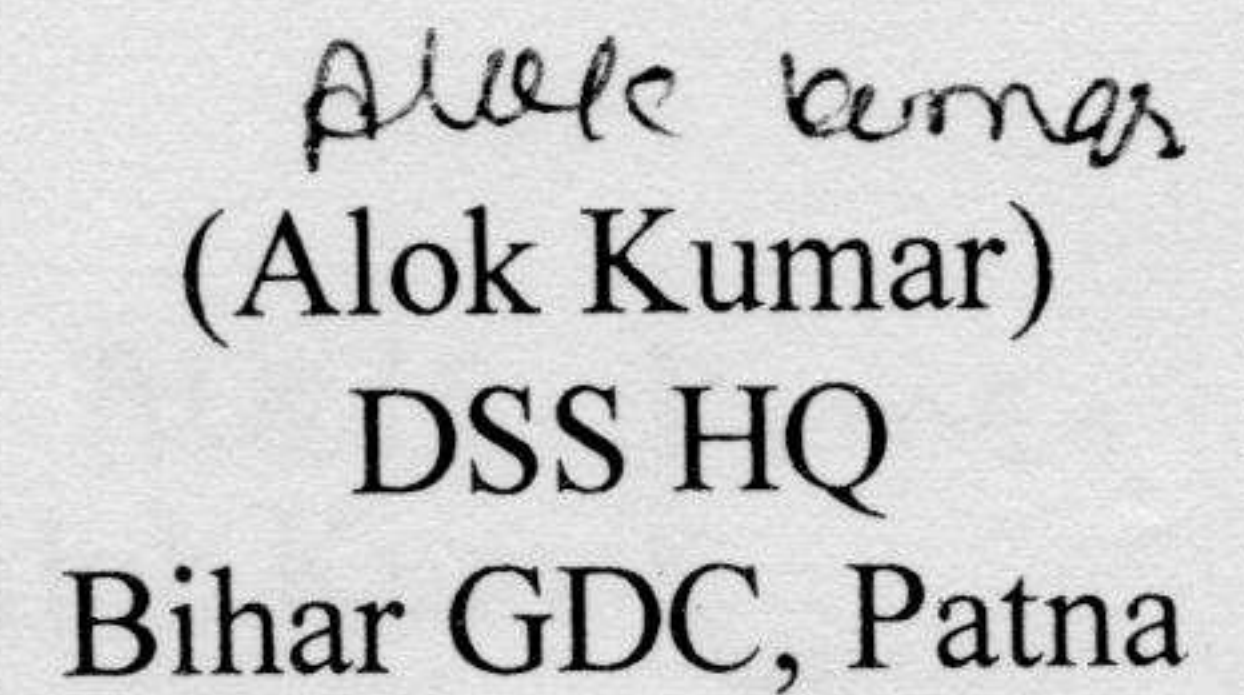 Alok Kumar
(Alok Kumar)
DSS HQ
Bihar GDC, Patna